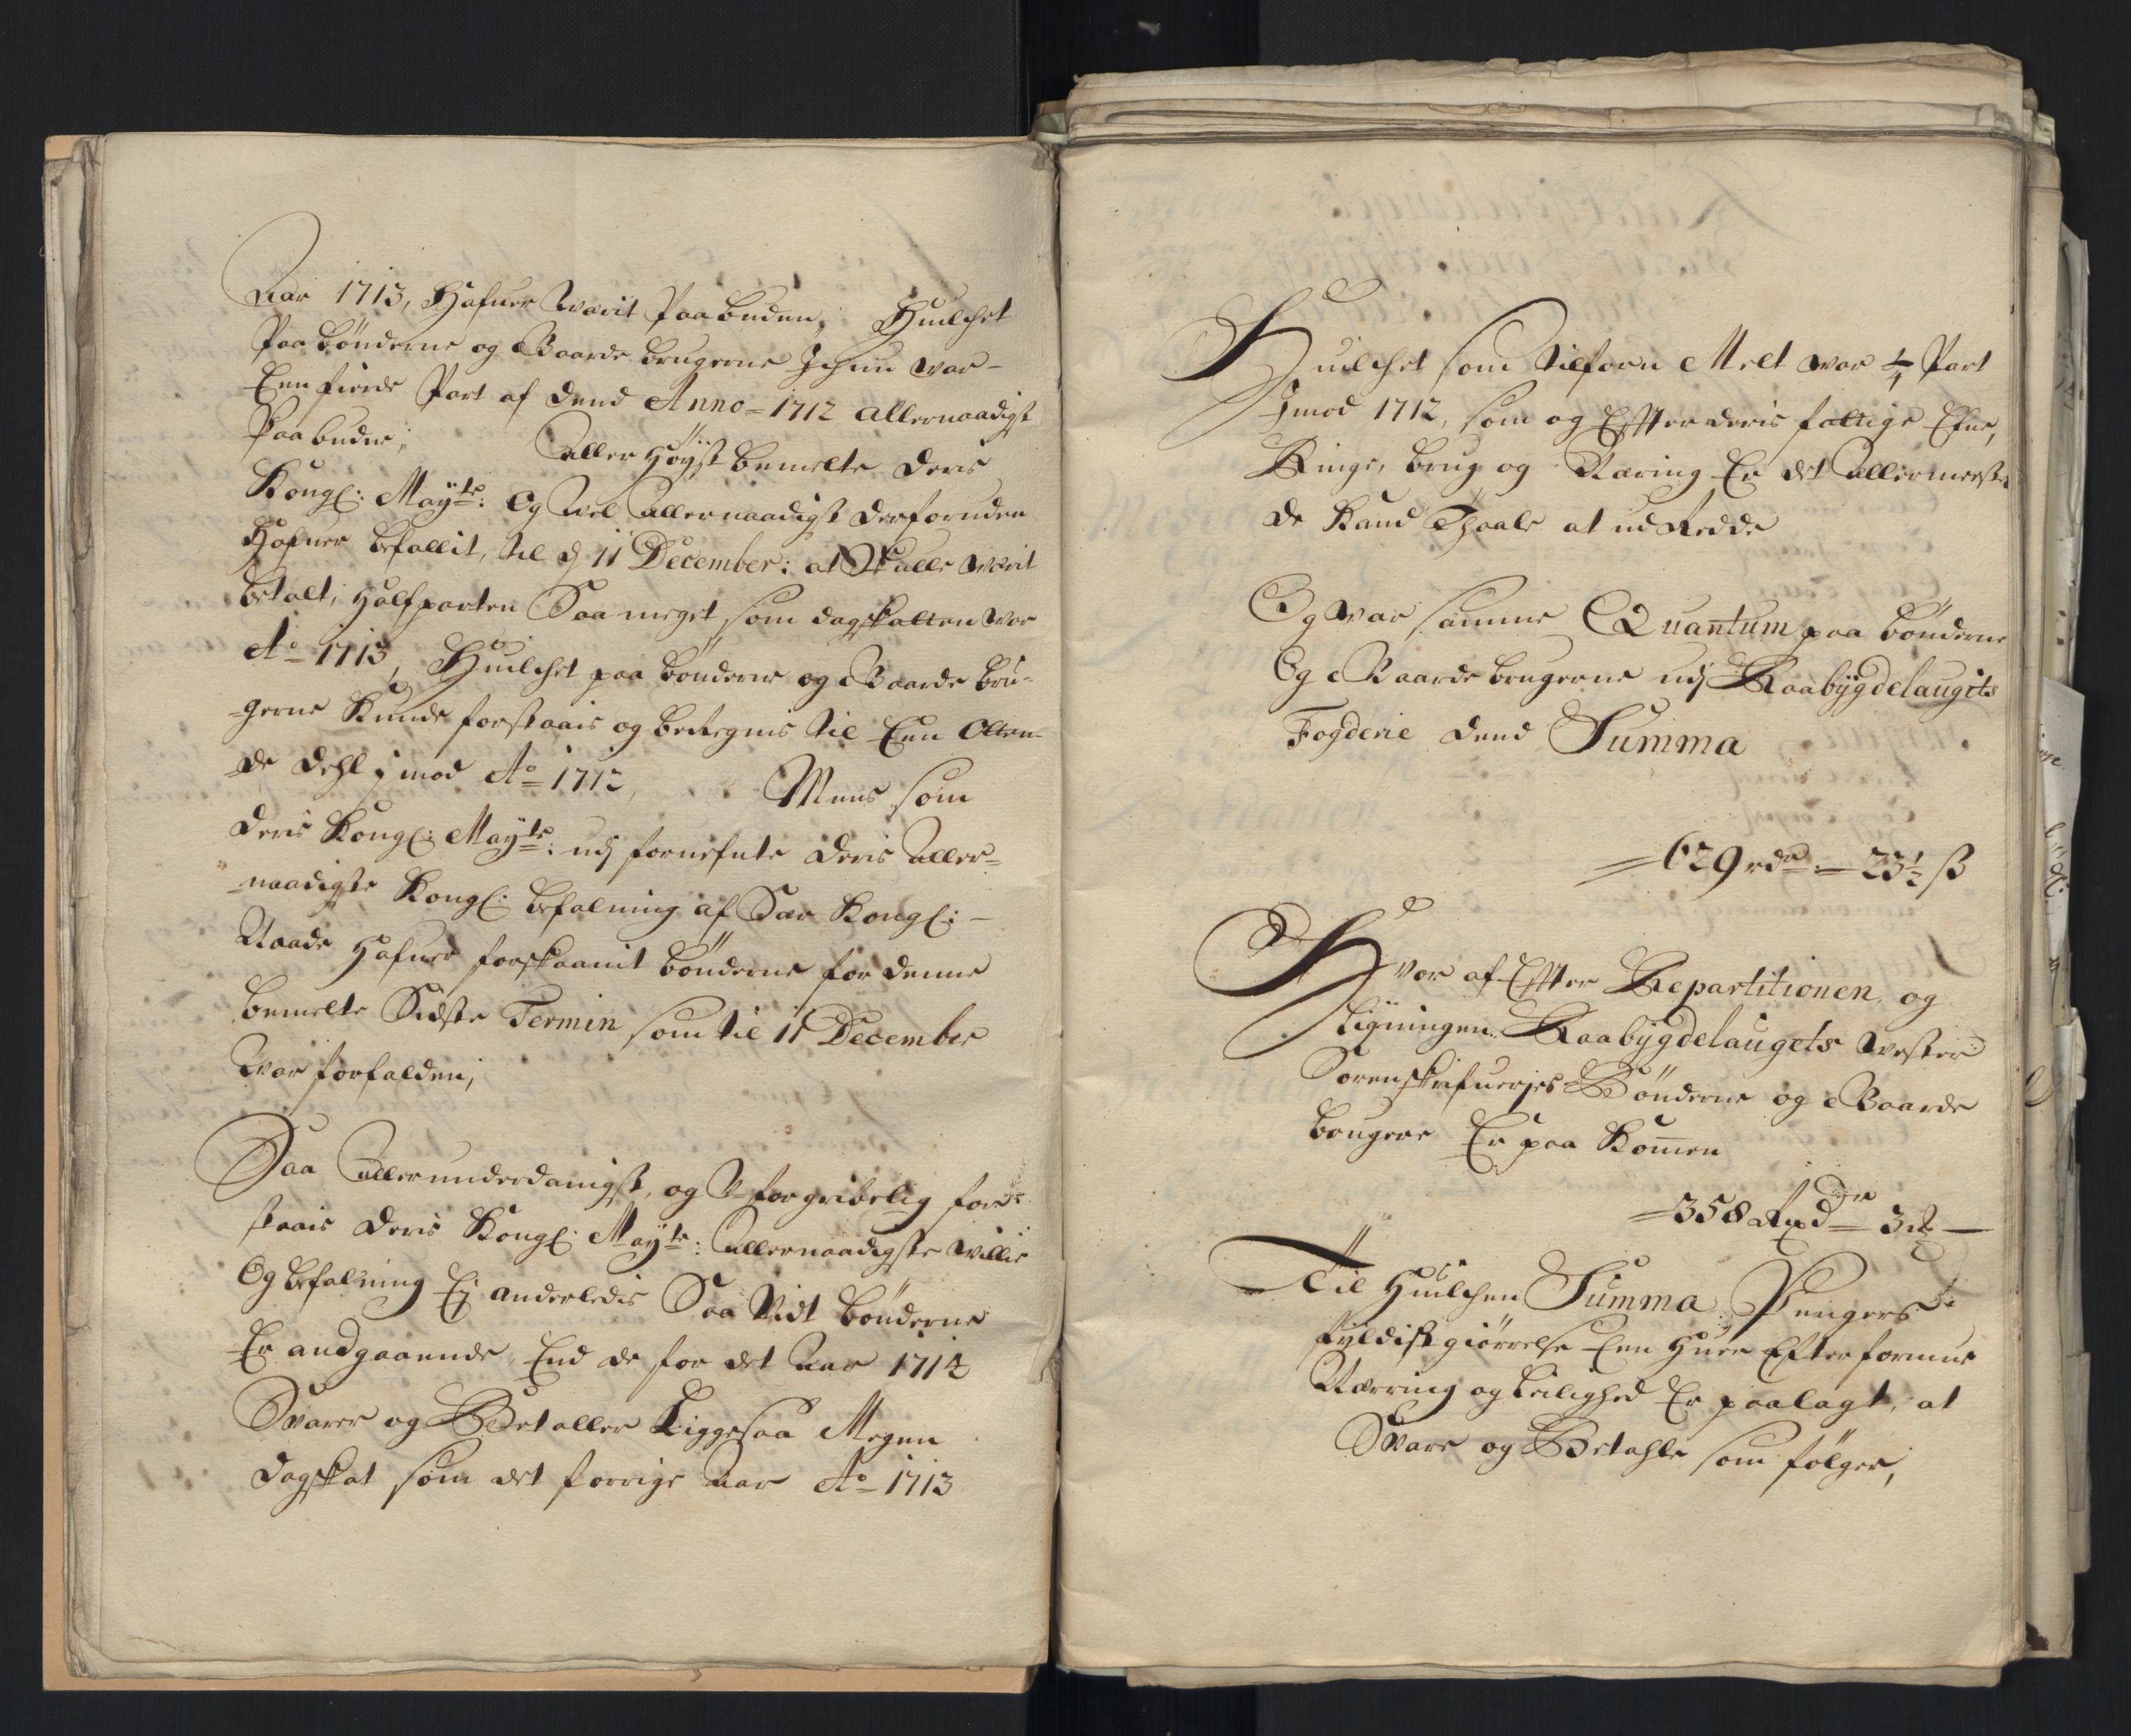 Aar 1713, Hafuer Værit Paabuden, Huilchet
Paa Bönderne og Gaarde Brugerne Ichun var
Een fierde Part af dend Anno 1712 Allernaadigst
Paabudne; Aller Höyst bemelte Deris
Kongl: Mayts: Og vel Allernaadigst Desforuden
Hafuer befallit, til d 11 December: at Skulle værit
betalt; Halfparten Saa meget som dagskatten var
Ao 1713, Huilchet paa bönderne og Gaarde bru-
-gerne Kunde forstaais og beregnis til Een Otten-
de Dehl imod Ao 1712, Mens som
Deris Kongl: Mayts: udj fornefnte Deris Aller-
naadigste Kongl: befalning af Sær Kongl:
Naade Hafuer forskaanit bönderne for denne
bemelte Sidste Termin som til 11 December
Var forfalden;
Saa Allerunderdanigst, og U-forgribelig for-
staais Deris Kongl: Mayts: Allernaadigste villie
Og befalning Ej anderledis Saa Vidt bönderne
Er andgaaende, End de for det Aar 1714
Svarer og Betaller Liggesaa Megen
Dagskat som det forrige Aar Ao 1713
Huilchet som tilforn Melt var 1/4 Part
Imod 1712, som og Effter deris fattige Efne,
Ringe, brug og Næring Er det Allermeeste
de Kand Thaale at udRedde
Og var samme Quantum paa bönderne
Og Gaarde brugerne udj Raabÿgdelaugets
Fogderie dend Summa
629 rdr: 23 1/2 ß
Hvor af Effter Repartitionen og
Ligningen Raabÿgdelaugets Vester
Sorenskrifueries Bönderne og Gaarde
brugere Er paa Komen
358 Rixdr 3
Til Huilchen Summa Pengers
fyldistgiörrelse Een Huer Efter formue
Nærring og Leilighed Er paalagt, at
Svare og Betahle som fölger,